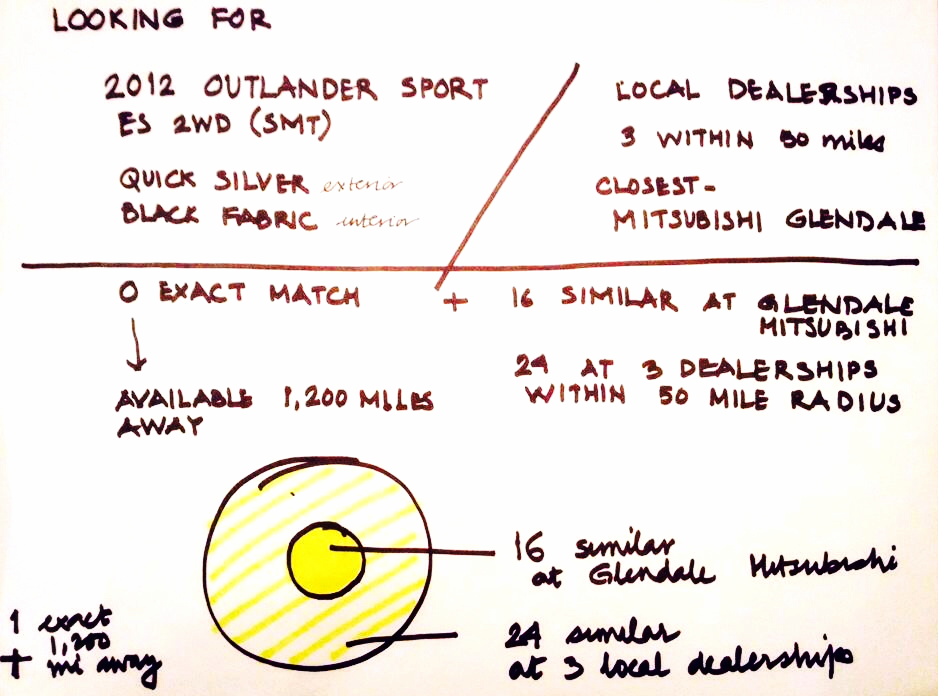 LOOKING FOR
2012 OUTLANDER SPORT
ES 2WD (5MT)
QUICK SILVER exterior
BLACK FABRIC interior
LOCAL DEALERSHIPS
3 WITHIN 50 miles
CLOSEST-
MITSUBISHI GLENDALE
0 EXACT MATCH
AVAILABLE 1,200 MILES
AWAY
+ 16 SIMILAR AT GLENDALE
MITSUBISHI
24 AT 3 DEALERSHIPS
WITHIN 50 MILE RADIUS
16 similar
at Glendale Mitsubishi
24 similar
at 3 local dealerships
1 exact
1,200
+ mi away